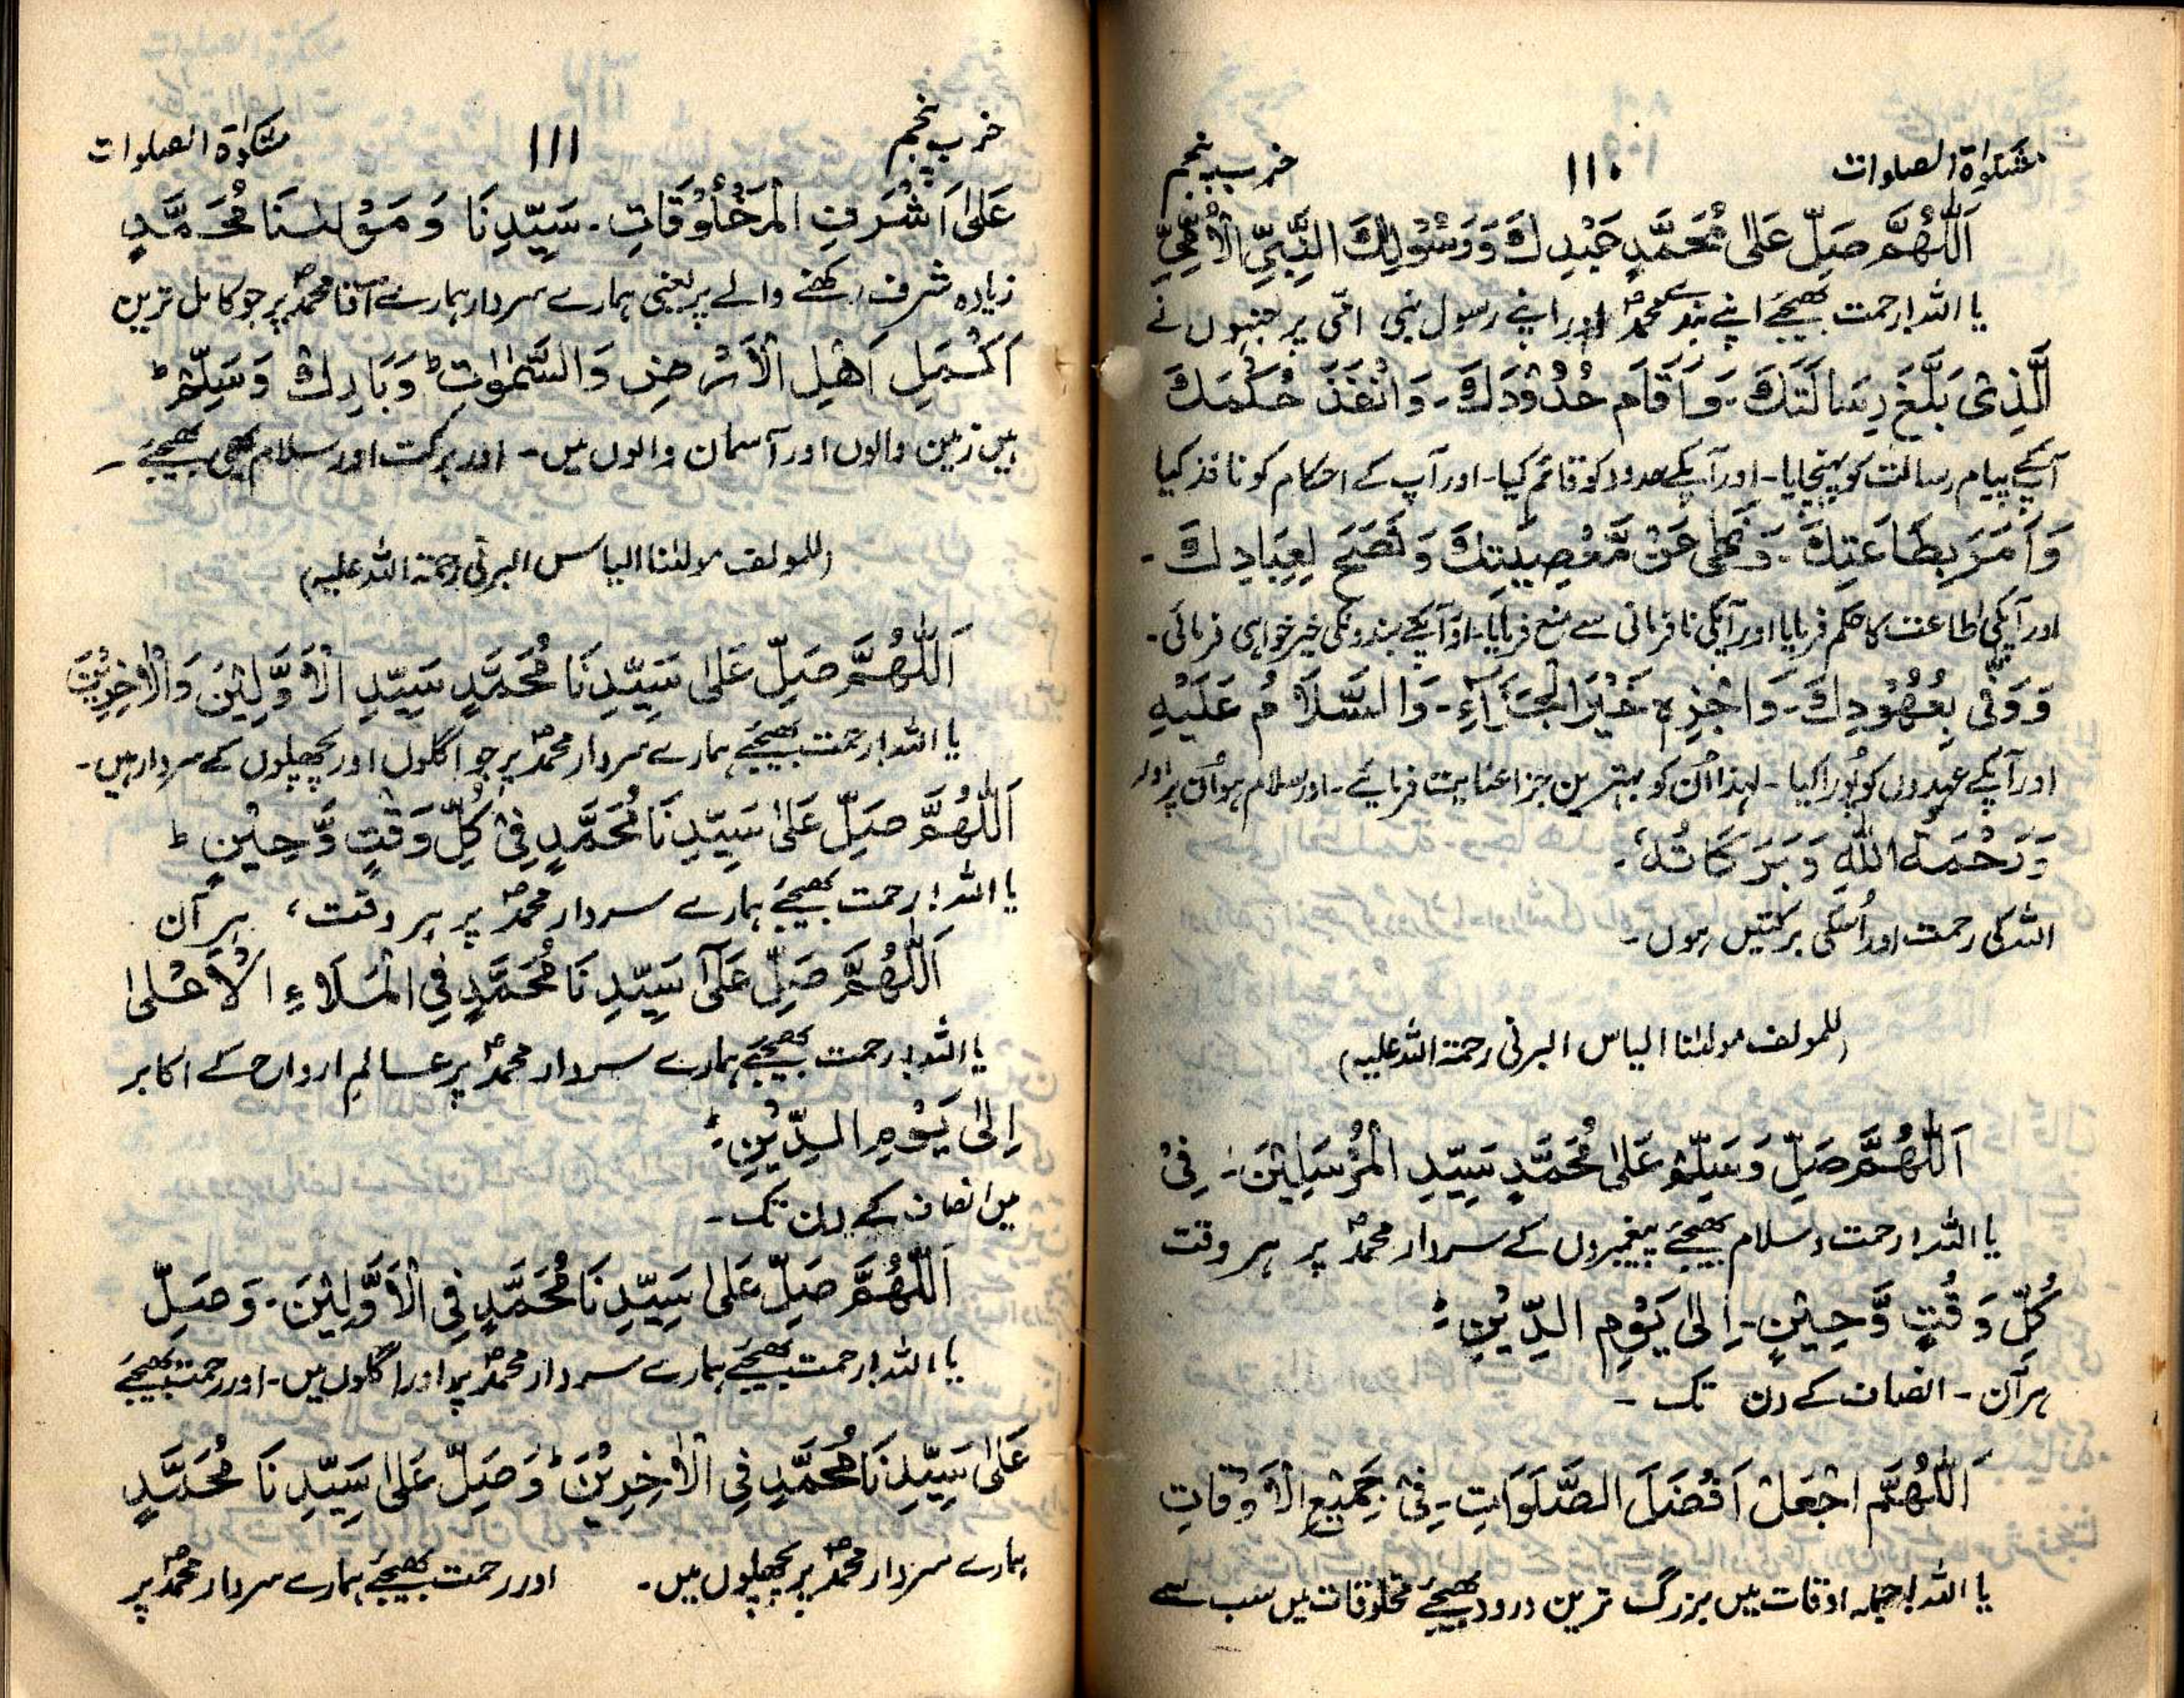 مشکوٰۃ الصلوات ۱۱۰ حزب پنجم
اَللّٰهُمَّ صَلِّ عَلٰی مُحَمَّدٍ عَبْدِكَ وَرَسُوْلِكَ النَّبِيِّ الْاُمِّيِّ
یا اللہ! رحمت بھیجئے اپنے بندے محمدؐ اور اپنے رسول نبی امّی پر جنہوں نے
الَّذِیْ بَلَّغَ رِسَالَتَكَ ۔ وَاَقَامَ حُدُوْدَكَ ۔ وَاَنْفَذَ حُكْمَكَ
آپکے پیام رسالت کو پہنچایا ۔ اور آپکے حدود کو قائم کیا ۔ اور آپ کے احکام کو نافذ کیا
وَاَمَرَ بِطَاعَتِكَ ۔ وَنَهٰی عَنْ مَّعْصِيَتِكَ وَنَصَحَ لِعِبَادِكَ ۔
اور آپکی اطاعت کا حکم فرمایا اور آپکی نافرمانی سے منع فرمایا ۔ اور آپکے بندونکی خیر خواہی فرمائی ۔
وَوَفّٰی بِعُهُوْدِكَ ۔ وَاجْزِهٖ خَيْرَ الْجَزَآءِ ۔ وَالسَّلَامُ عَلَيْهِ
اور آپکے عہدوں کو پُورا کیا ۔ لہذا اُن کو بہترین جزا عنایت فرمائیے ۔ اور سلام ہو اُن پر اور
وَرَحْمَةُ اللّٰهِ وَبَرَكَاتُهٗ ۔
اللہ کی رحمت اور اُسکی برکتیں ہوں ۔
(للمولف مولٰنا الیاس البرنی رحمۃ اللہ علیہ)
اَللّٰهُمَّ صَلِّ وَسَلِّمْ عَلٰی مُحَمَّدٍ سَيِّدِ الْمُرْسَلِيْنَ ۔ فِیْ
یا اللہ! رحمت و سلام بھیجئے پیغمبروں کے سردار محمدؐ پر ہر وقت
كُلِّ وَقْتٍ وَّحِيْنٍ ۔ اِلٰی يَوْمِ الدِّيْنِ ؕ
ہر آن ۔ انصاف کے دن تک ۔
اَللّٰهُمَّ اجْعَلْ اَفْضَلَ الصَّلَوَاتِ ۔ فِیْ جَمِيْعِ الْاَوْقَاتِ
یا اللہ! جملہ اوقات میں بزرگ ترین درود بھیجئے مخلوقات میں سب سے
حزب پنجم ۱۱۱ مشکوٰۃ الصلوات
عَلٰی اَشْرَفِ الْمَخْلُوْقَاتِ ۔ سَيِّدِنَا وَمَوْلٰىنَا مُحَمَّدٍ
زیادہ شرف رکھنے والے پر یعنی ہمارے سردار ہمارے آقا محمدؐ پر جو کامل ترین
اَكْمَلِ اَهْلِ الْاَرْضِ وَالسَّمٰوٰتِ ؕ وَبَارِكْ وَسَلِّمْ ؕ
ہیں زمین والوں اور آسمان والوں میں ۔ اور برکت اور سلام بھی بھیجئے ۔
(للمولف مولٰنا الیاس البرنی رحمۃ اللہ علیہ)
اَللّٰهُمَّ صَلِّ عَلٰی سَيِّدِنَا مُحَمَّدٍ سَيِّدِ الْاَوَّلِيْنَ وَالْاٰخِرِيْنَ
یا اللہ! رحمت بھیجئے ہمارے سردار محمدؐ پر جو اگلوں اور پچھلوں کے سردار ہیں ۔
اَللّٰهُمَّ صَلِّ عَلٰی سَيِّدِنَا مُحَمَّدٍ فِیْ كُلِّ وَقْتٍ وَّحِيْنٍ ؕ
یا اللہ! رحمت بھیجئے ہمارے سردار محمدؐ پر ہر وقت، ہر آن
اَللّٰهُمَّ صَلِّ عَلٰی سَيِّدِنَا مُحَمَّدٍ فِی الْمَلَاءِ الْاَعْلٰی
یا اللہ! رحمت بھیجئے ہمارے سردار محمدؐ پر عالمِ ارواح کے اکابر
اِلٰی يَوْمِ الدِّيْنِ ؕ
میں انصاف کے دن تک ۔
اَللّٰهُمَّ صَلِّ عَلٰی سَيِّدِنَا مُحَمَّدٍ فِی الْاَوَّلِيْنَ ۔ وَصَلِّ
یا اللہ! رحمت بھیجئے ہمارے سردار محمدؐ پر اور اگلوں میں ۔ اور رحمت بھیجئے
عَلٰی سَيِّدِنَا مُحَمَّدٍ فِی الْاٰخِرِيْنَ ؕ وَصَلِّ عَلٰی سَيِّدِنَا مُحَمَّدٍ
ہمارے سردار محمدؐ پر پچھلوں میں ۔ اور رحمت بھیجئے ہمارے سردار محمدؐ پر